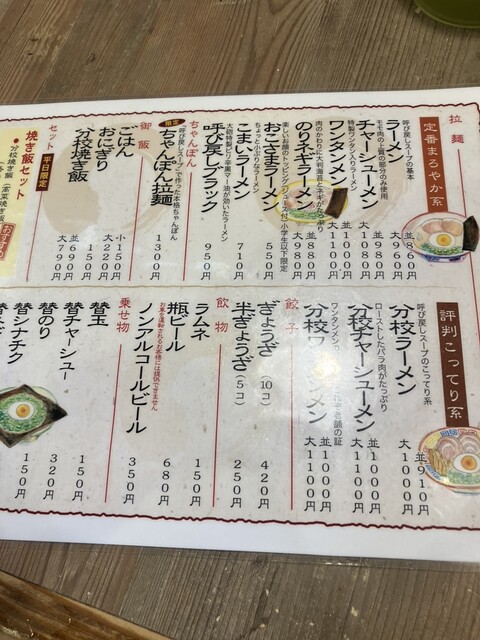 拉麺
定番まろやか系
呼び戻しスープの基本
ラーメン
並860円
大960円
モモ肉の上質の部分のみ使用
チャーシューメン
並980円
大1080円
特製ワンタン入りラーメン
ワンタンメン
並1000円
大1100円
肉のかわりに大判海苔とネギがたっぷり
のりネギラーメン
並880円
大980円
楽しいお顔のトッピング(ジュース付)小学生以下限定
おこさまラーメン
550円
ちょっと小ぶりなラーメン
こまいラーメン
710円
大砲特製ピリ辛黒マー油が効いたラーメン
呼び戻しブラック
950円
ちゃんぽん
呼び戻しスープで作った本格ちゃんぽん
限定
ちゃんぽん拉麺
1300円
御飯
ごはん
小150円
大220円
おにぎり
150円
分校焼き飯
並690円
大790円
セット
平日限定
焼き飯セット
評判こってり系
呼び戻しスープのこってり系
分校ラーメン
並910円
大1000円
ローストしたバラ肉がたっぷり
分校チャーシューメン
並1000円
大1100円
分校ワンタンメン
並1000円
大1100円
餃子
ぎょうざ(10コ)
420円
半ぎょうざ(5コ)
250円
飲物
ラムネ
150円
瓶ビール
680円
お車を運転されるお客様には提供できません
ノンアルコールビール
350円
乗せ物
替玉
150円
替チャーシュー
320円
替のり
150円
替シナチク
150円